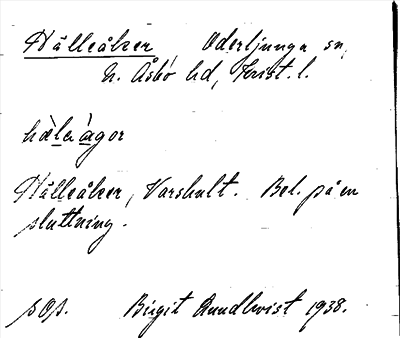 Hälleåker, Oderljunga sn,
N. Åsbo hd, Krist. l.
hæ̀lɑ̀gor
Hälleåker, Varshult. Bel. på en
sluttning.
sOp. Birgit Rundkvist 1938.